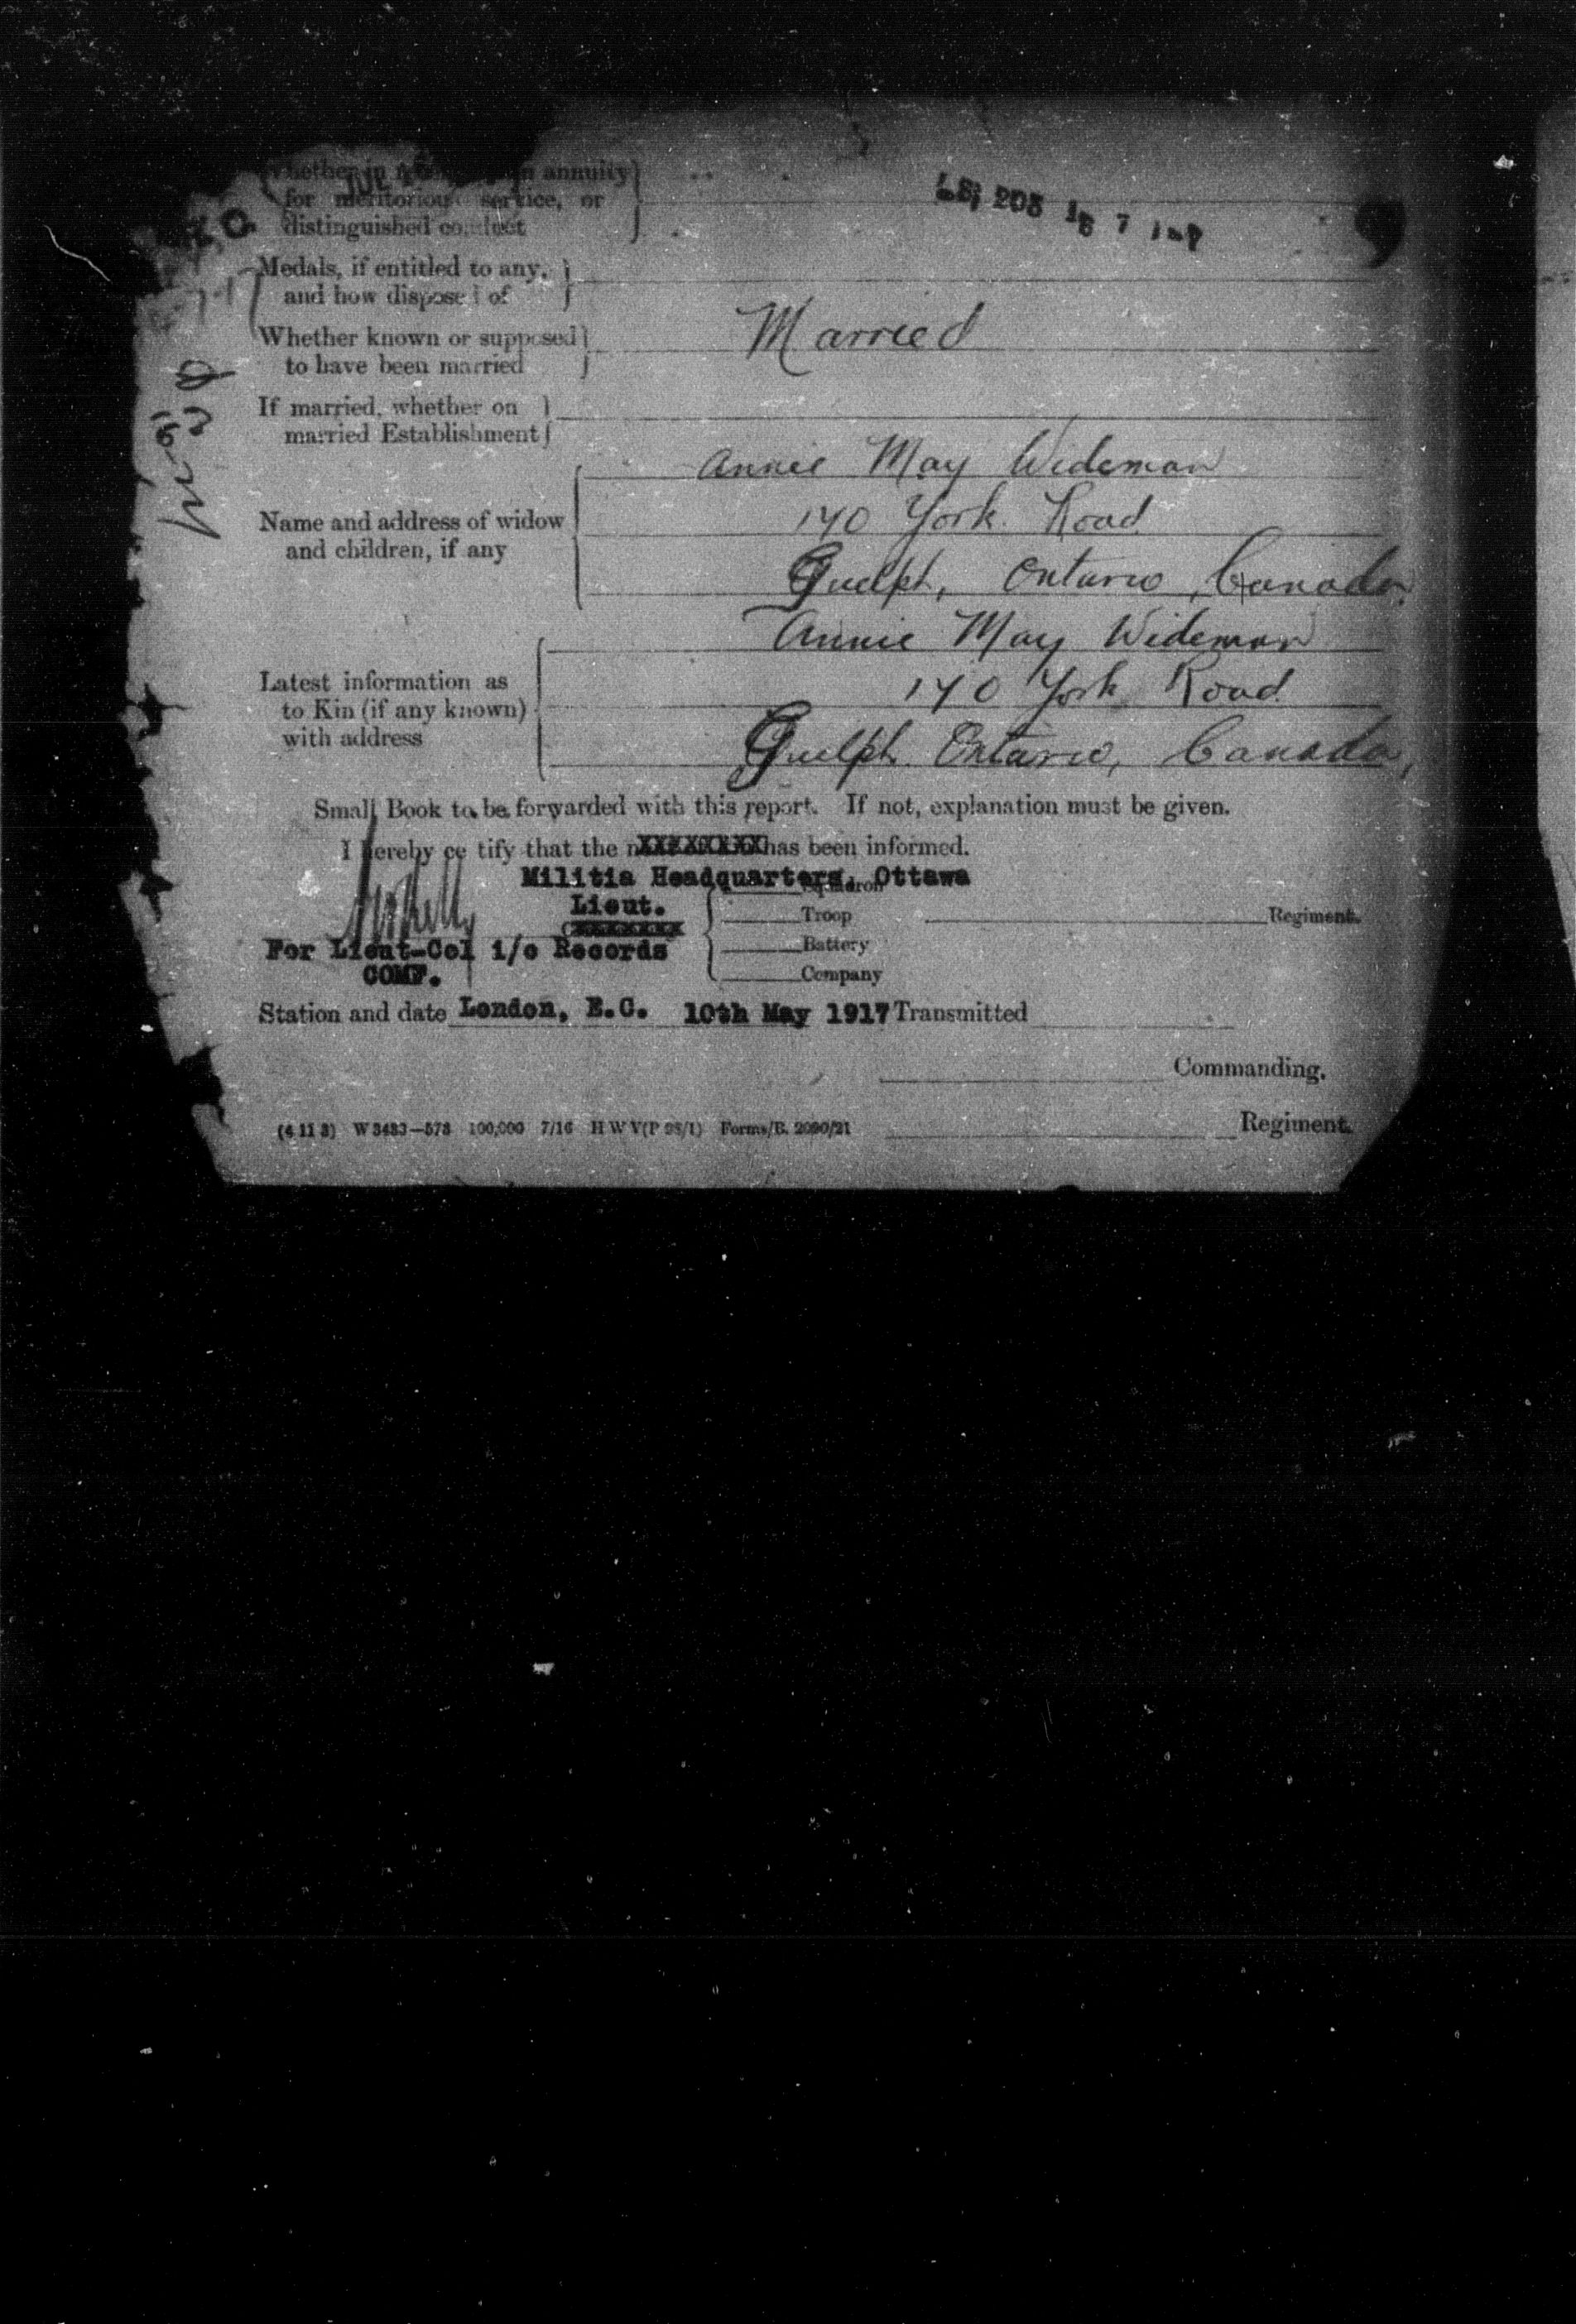 Whether in annuity
for meritorious service, or
distinguished conduct
Medals, if entitled to any,
and how disposed of
Whether known or supposed
to have been married Married
If married, whether on
married Establishment
Annie May Wideman
140 York Road
Name and address of widow
and children, if any
Guelph, Ontario, Canada.
Annie May Wideman
Latest information as
to Kin (if any known) 140 York Road
with address
Guelph Ontario, Canada,
Small Book to be forwarded with this report. If not, explanation must be given.
I hereby certify that the has been informed.
Militia Headquarters, Ottawa
Squadron
Lieut.
Troop Regiment.
For Lieut-Col i/c Records Battery
Company
Station and date London, E.C. 10th May 1917 Transmitted
Commanding.
(4 11 3) 100,000 7/16 Regiment.